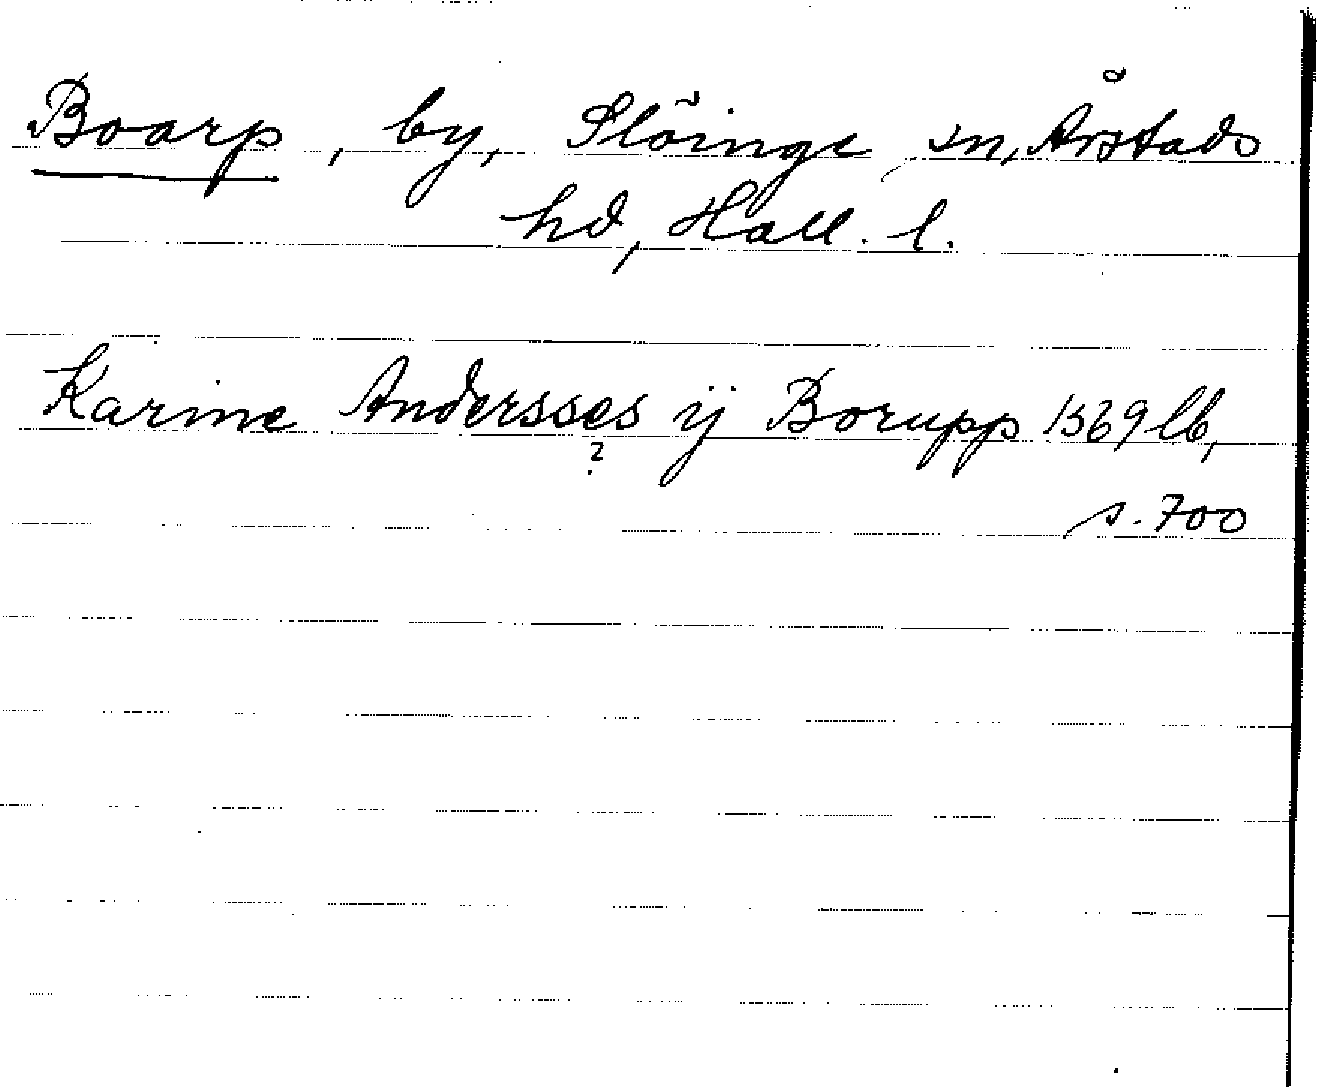 Boarp, by, Slöinge sn, Årstads
hd, Hall. l.
Karine Andersses ij Borupp 1569 lb,
?
s. 700